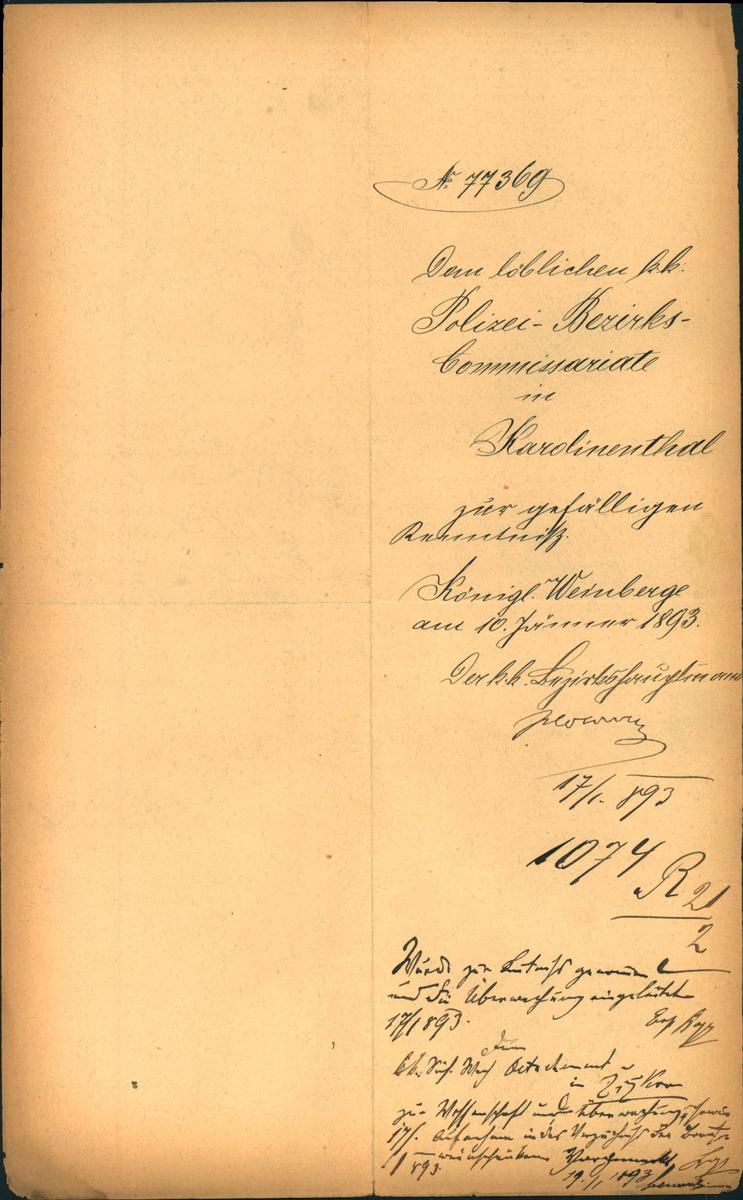 № 77369
Dem löblichen k.k.
Polizei-Bezirks-
Commissariate
in
Karolinenthal
zur gefälligen
Kenntniß.
Königl. Weinberge
am 10. Jänner 1893.
Der k.k. Bezirkshauptmann
17/1. 893
1074
R 21
2
Wurde zur Kenntniß genommen
und die Überwachung eingeleitet
17/1 893.
Dem
k.k. Sich. Wach Detachement
in Žižkov
zur Wissenschaft und Überwachung, sowie
17/1. Aufnahme in das Verzeichniß der
1 893. Vorgemerkt
19./1 1893